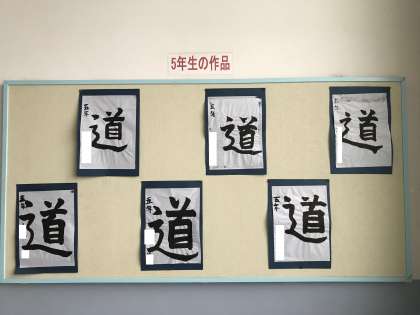 5年生の作品
道
五年
道
五年
道
五年
道
五年
道
五年
道
五年